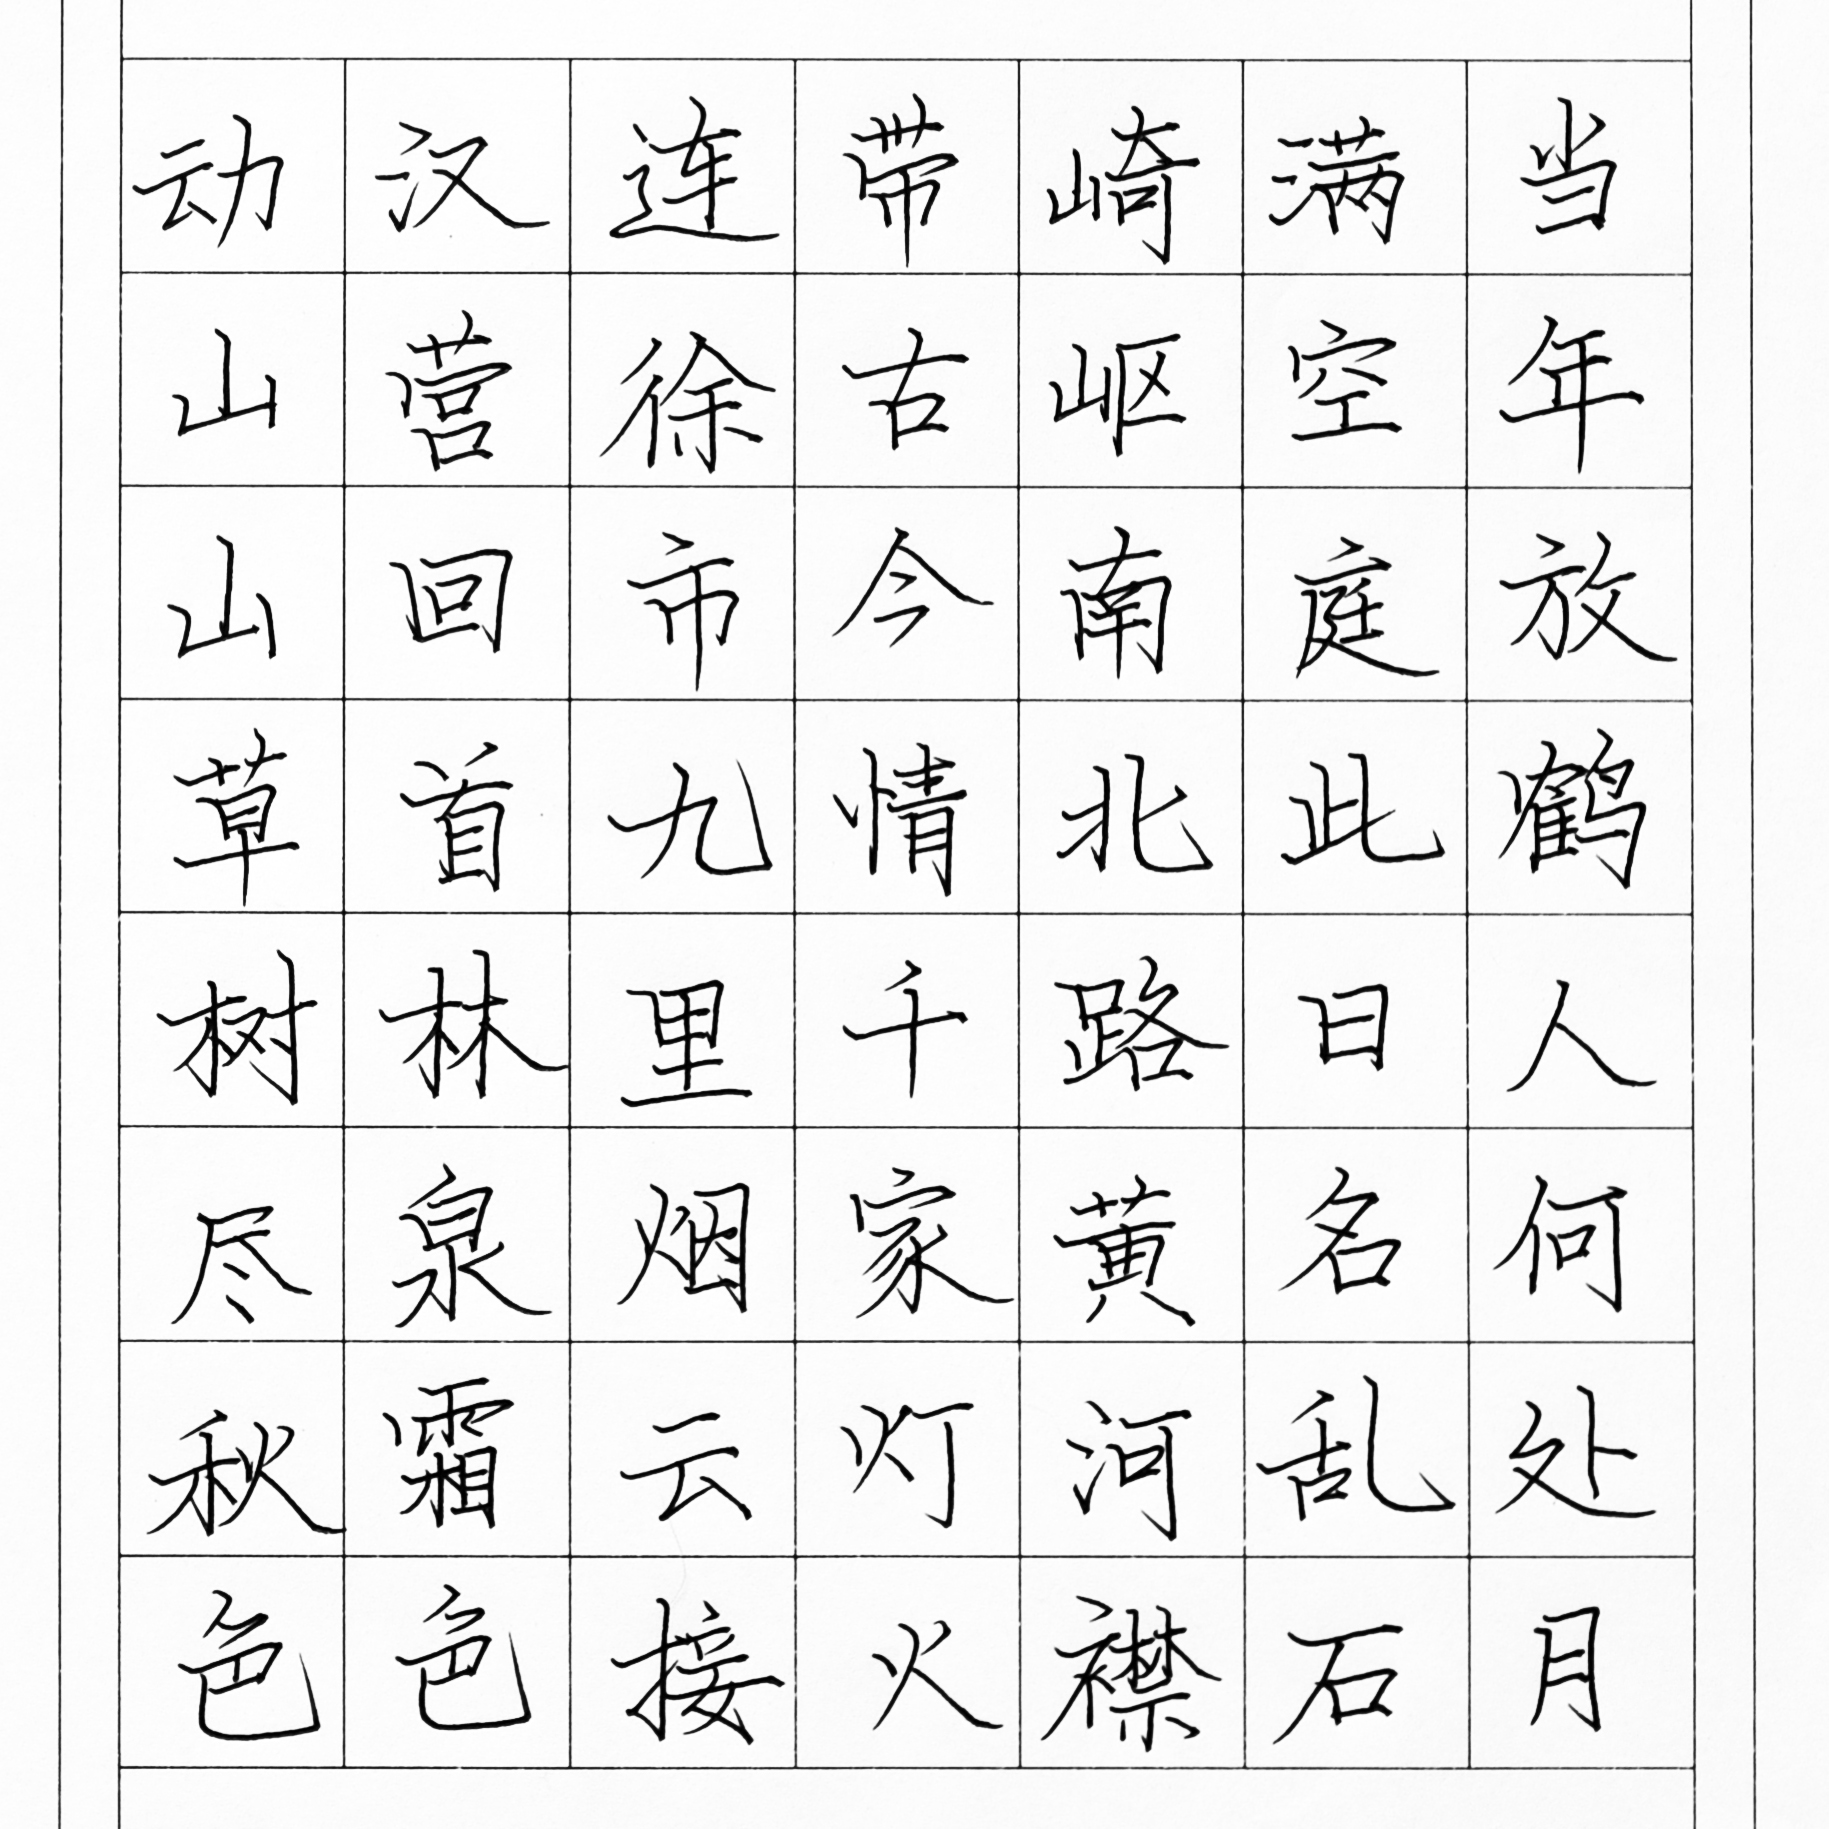 当年放鹤人何处月
满空庭此日名乱石
崎岖南北路黄河襟
带古今情千家灯火
连徐市九里烟云接
汉营回首林泉霜色
动山山草树尽秋色